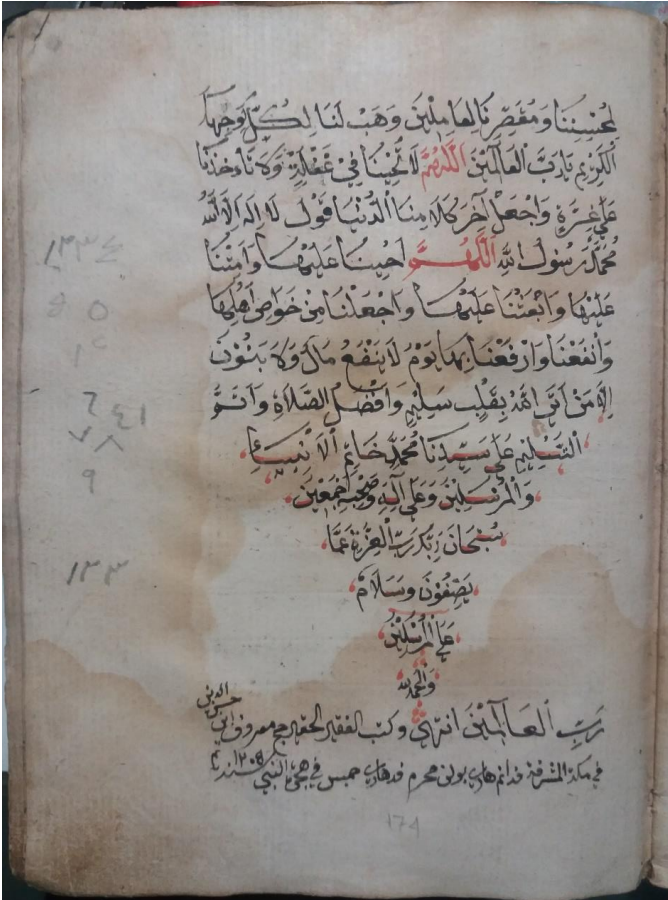 لِمُحْسِنِنَا وَمُقَصِّرِنَا لِعَامِلِيْنَ وَهَبْ لَنَا لِكُلٍّ لِوَجْهِكَ
الْكَرِيْمِ يَا رَبَّ الْعَالَمِيْنَ اَللّٰهُمَّ لَا تُحْيِنَا فِيْ غَفْلَةٍ وَلَا تَأْخُذْنَا
عَلٰى غِرَّةٍ وَاجْعَلْ آخِرَ كَلَامِنَا الدُّنْيَا قَوْلَ لَا اِلٰهَ اِلَّا اللّٰهُ
مُحَمَّدٌ رَسُوْلُ اللّٰهِ اَللّٰهُمَّ اَحْيِنَا عَلَيْهَا وَاَمِتْنَا
عَلَيْهَا وَابْعَثْنَا عَلَيْهَا وَاجْعَلْنَا مِنْ خَوَاصِ اَهْلِهَا
وَانْفَعْنَا وَارْفَعْنَا بِهَا يَوْمَ لَا يَنْفَعُ مَالٌ وَلَا بَنُوْنَ
اِلَّا مَنْ اَتَى اللّٰهَ بِقَلْبٍ سَلِيْمٍ وَاَفْضَلُ الصَّلَاةِ وَاَتَمُّ
التَّسْلِيْمِ عَلٰى سَيِّدِنَا مُحَمَّدٍ خَاتِمِ الْاَنْبِيَاءِ
وَالْمُرْسَلِيْنَ وَعَلٰى آلِهِ وَصَحْبِهِ اَجْمَعِيْنَ
سُبْحَانَ رَبِّكَ رَبِّ الْعِزَّةِ عَمَّا
يَصِفُوْنَ وَسَلَامٌ
عَلَى الْمُرْسَلِيْنَ
وَالْحَمْدُ لِلّٰهِ
رَبِّ الْعَالَمِيْنَ انتهى وكتب الفقير الحقير حج معروف ابن
في مكة المشرفة محرم خميس في هجرة النبي سنة ١٢٠٥
١٣٣
174